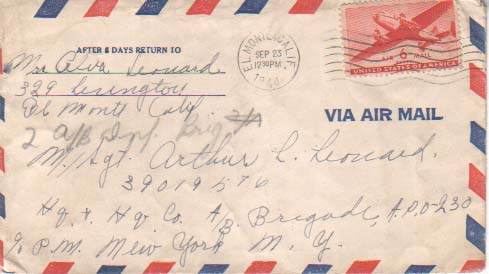 AFTER 5 DAYS RETURN TO
Mrs Alva Leonard
329 Lexington
El Monte Calif.
EL MONTE, CALIF.
SEP 23
12 30 PM
1944
6
AIR MAIL
UNITED STATES OF AMERICA
VIA AIR MAIL
2 A/B Inf. Brig
M/Sgt. Arthur L. Leonard.
39019576
Hq. & Hq Co. A/B Brigade, A.P.O-230
% P.M. New York N. Y.